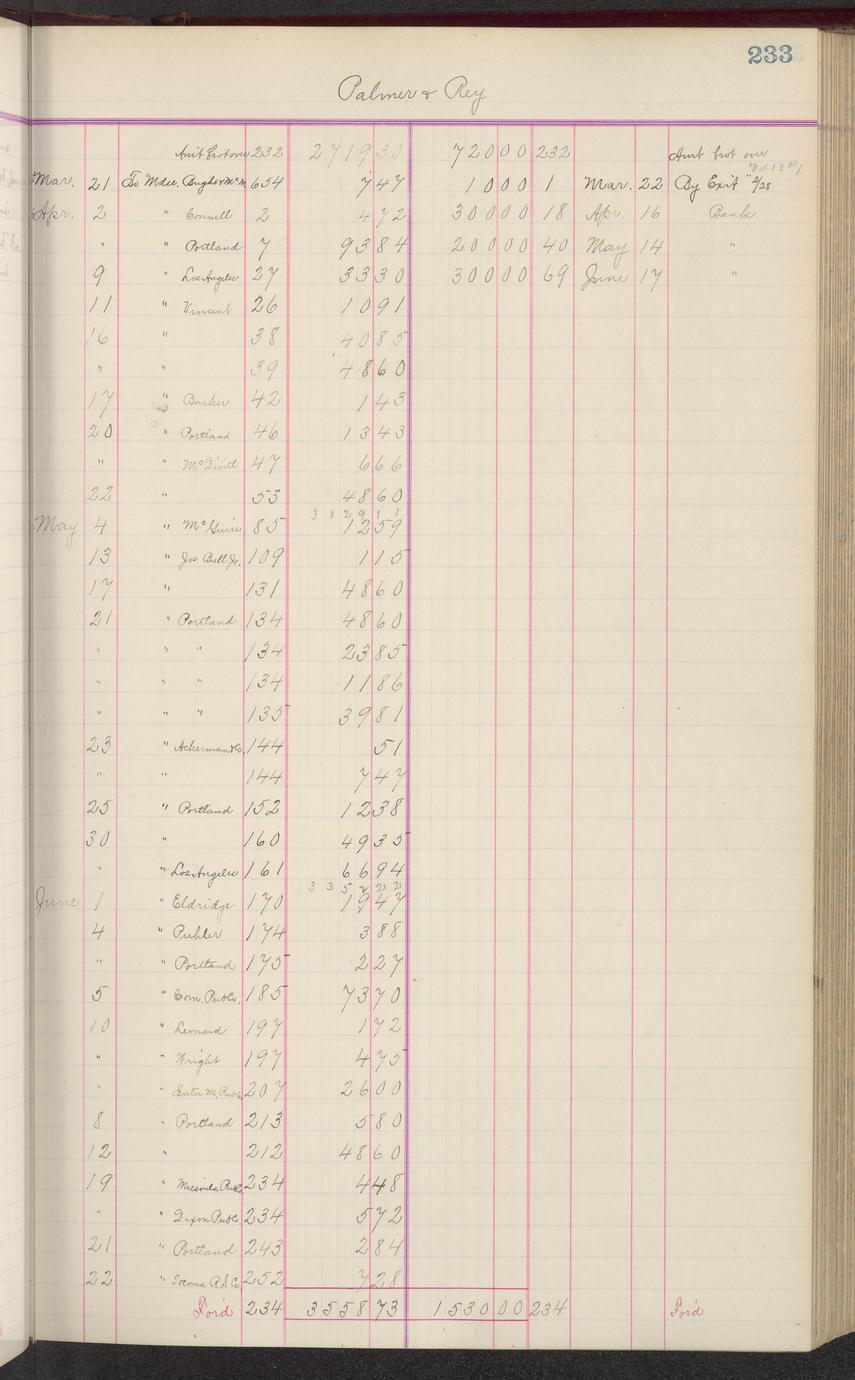 233
Palmer & Rey
Amt brot over 232 2719 30 720 00 232 Amt brot over
Mar. 21 To Mdse. 654 7 47 10 00 1 Mar. 22 By Exit 2/28
Apr. 2 " Connell 2 4 72 300 00 18 Apr. 16 Bank
" " Portland 7 93 84 200 00 40 May 14 "
9 " Los Angeles 27 33 30 300 00 69 June 17 "
11 " Vincent 26 10 91
16 " 38 40 85
" " 39 48 60
17 " Barker 42 1 43
20 " Portland 46 13 43
" " 47 6 66
22 " 53 48 60
3 8 2 9 1 1
May 4 " McGuire 85 12 59
13 " Jos Bell Jr. 109 1 15
17 " 131 48 60
21 " Portland 134 48 60
" " " 134 23 85
" " " 134 11 86
" " " 135 39 81
23 " Ackerman & Co. 144 51
" " 144 7 47
25 " Portland 152 12 38
30 " 160 49 35
" " Los Angeles 161 66 94
3 3 5 2 2 2
June 1 " Eldridge 170 19 47
4 " Puhler 174 3 88
" " Portland 175 2 27
5 " Com. Pub Co. 185 73 70
10 " Leonard 197 1 72
" " Wright 197 4 75
" " Inter M. Pub Co. 207 26 00
8 " Portland 213 5 80
12 " 212 48 60
19 " Pub Co. 234 4 48
" " Dixon Pub Co. 234 5 72
21 " Portland 243 2 84
22 " Tacoma R.S. Co. 252 7 28
For'd 234 3558 73 1530 00 234 For'd